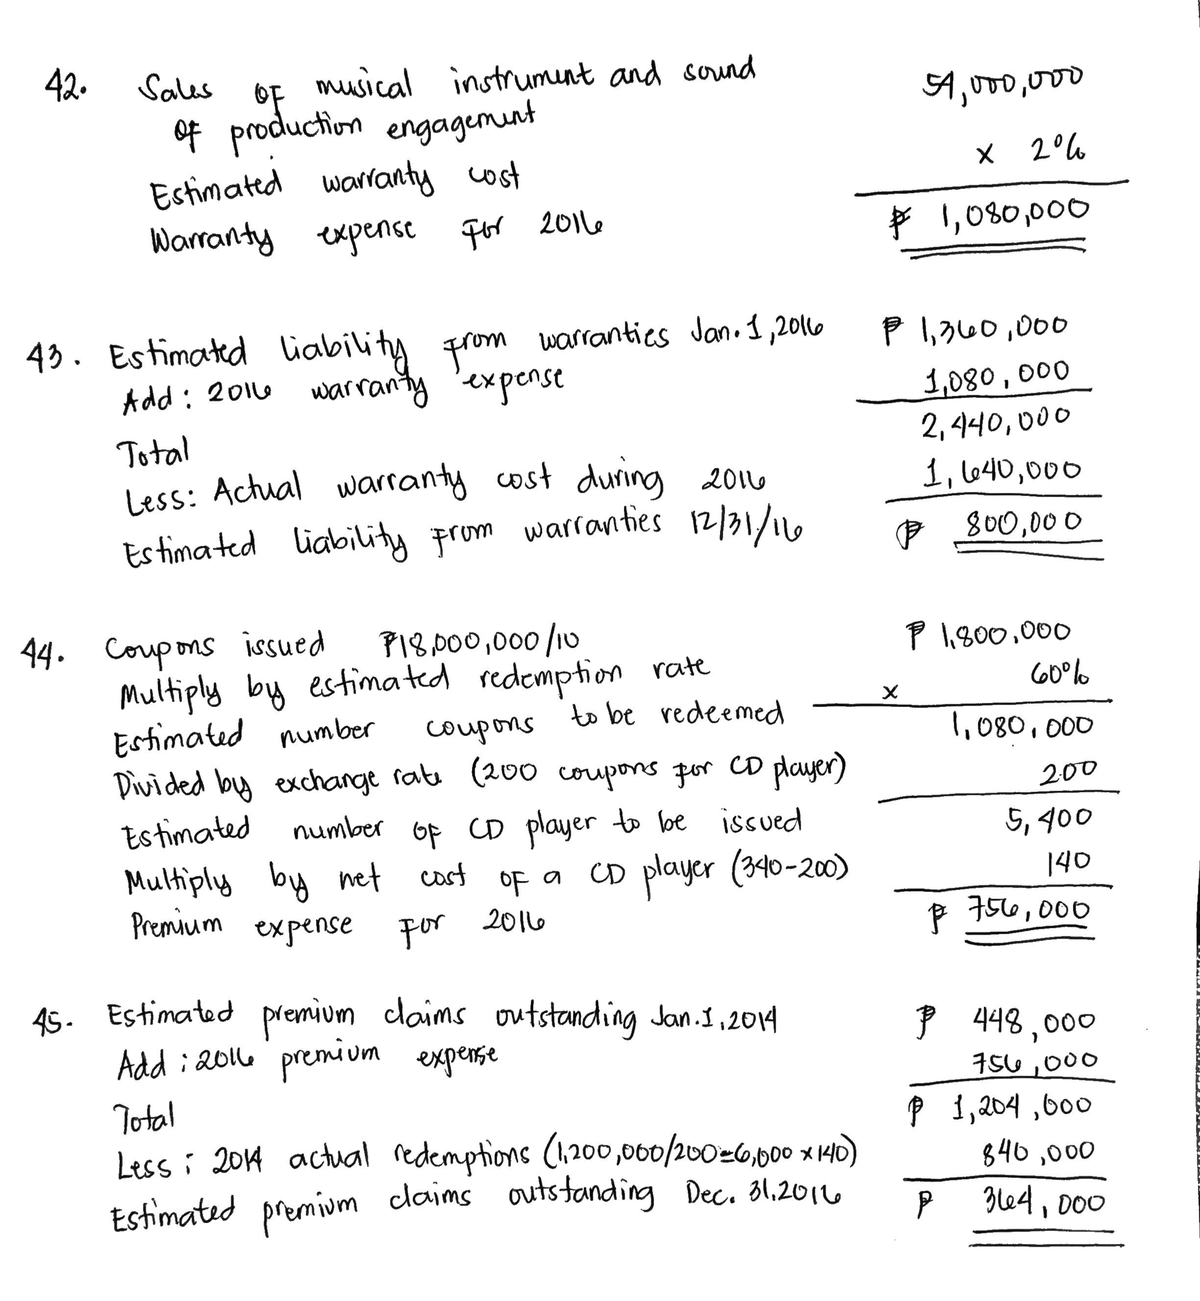 42. Sales of musical instrument and sound 54,000,000
of production engagement
Estimated warranty cost x 2%
Warranty expense for 2016 ₱ 1,080,000
43. Estimated liability from warranties Jan. 1, 2016 ₱ 1,360,000
Add: 2016 warranty expense 1,080,000
Total 2,440,000
Less: Actual warranty cost during 2016 1,640,000
Estimated liability from warranties 12/31/16 ₱ 800,000
44. Coupons issued ₱18,000,000/10 ₱ 1,800,000
Multiply by estimated redemption rate x 60%
Estimated number coupons to be redeemed 1,080,000
Divided by exchange rate (200 coupons for CD player) 200
Estimated number of CD player to be issued 5,400
Multiply by net cost of a CD player (340-200) 140
Premium expense for 2016 ₱ 756,000
45. Estimated premium claims outstanding Jan. 1, 2014 ₱ 448,000
Add: 2016 premium expense 756,000
Total ₱ 1,204,000
Less: 2014 actual redemptions (1,200,000/200=6,000 x 140) 840,000
Estimated premium claims outstanding Dec. 31, 2016 ₱ 364,000